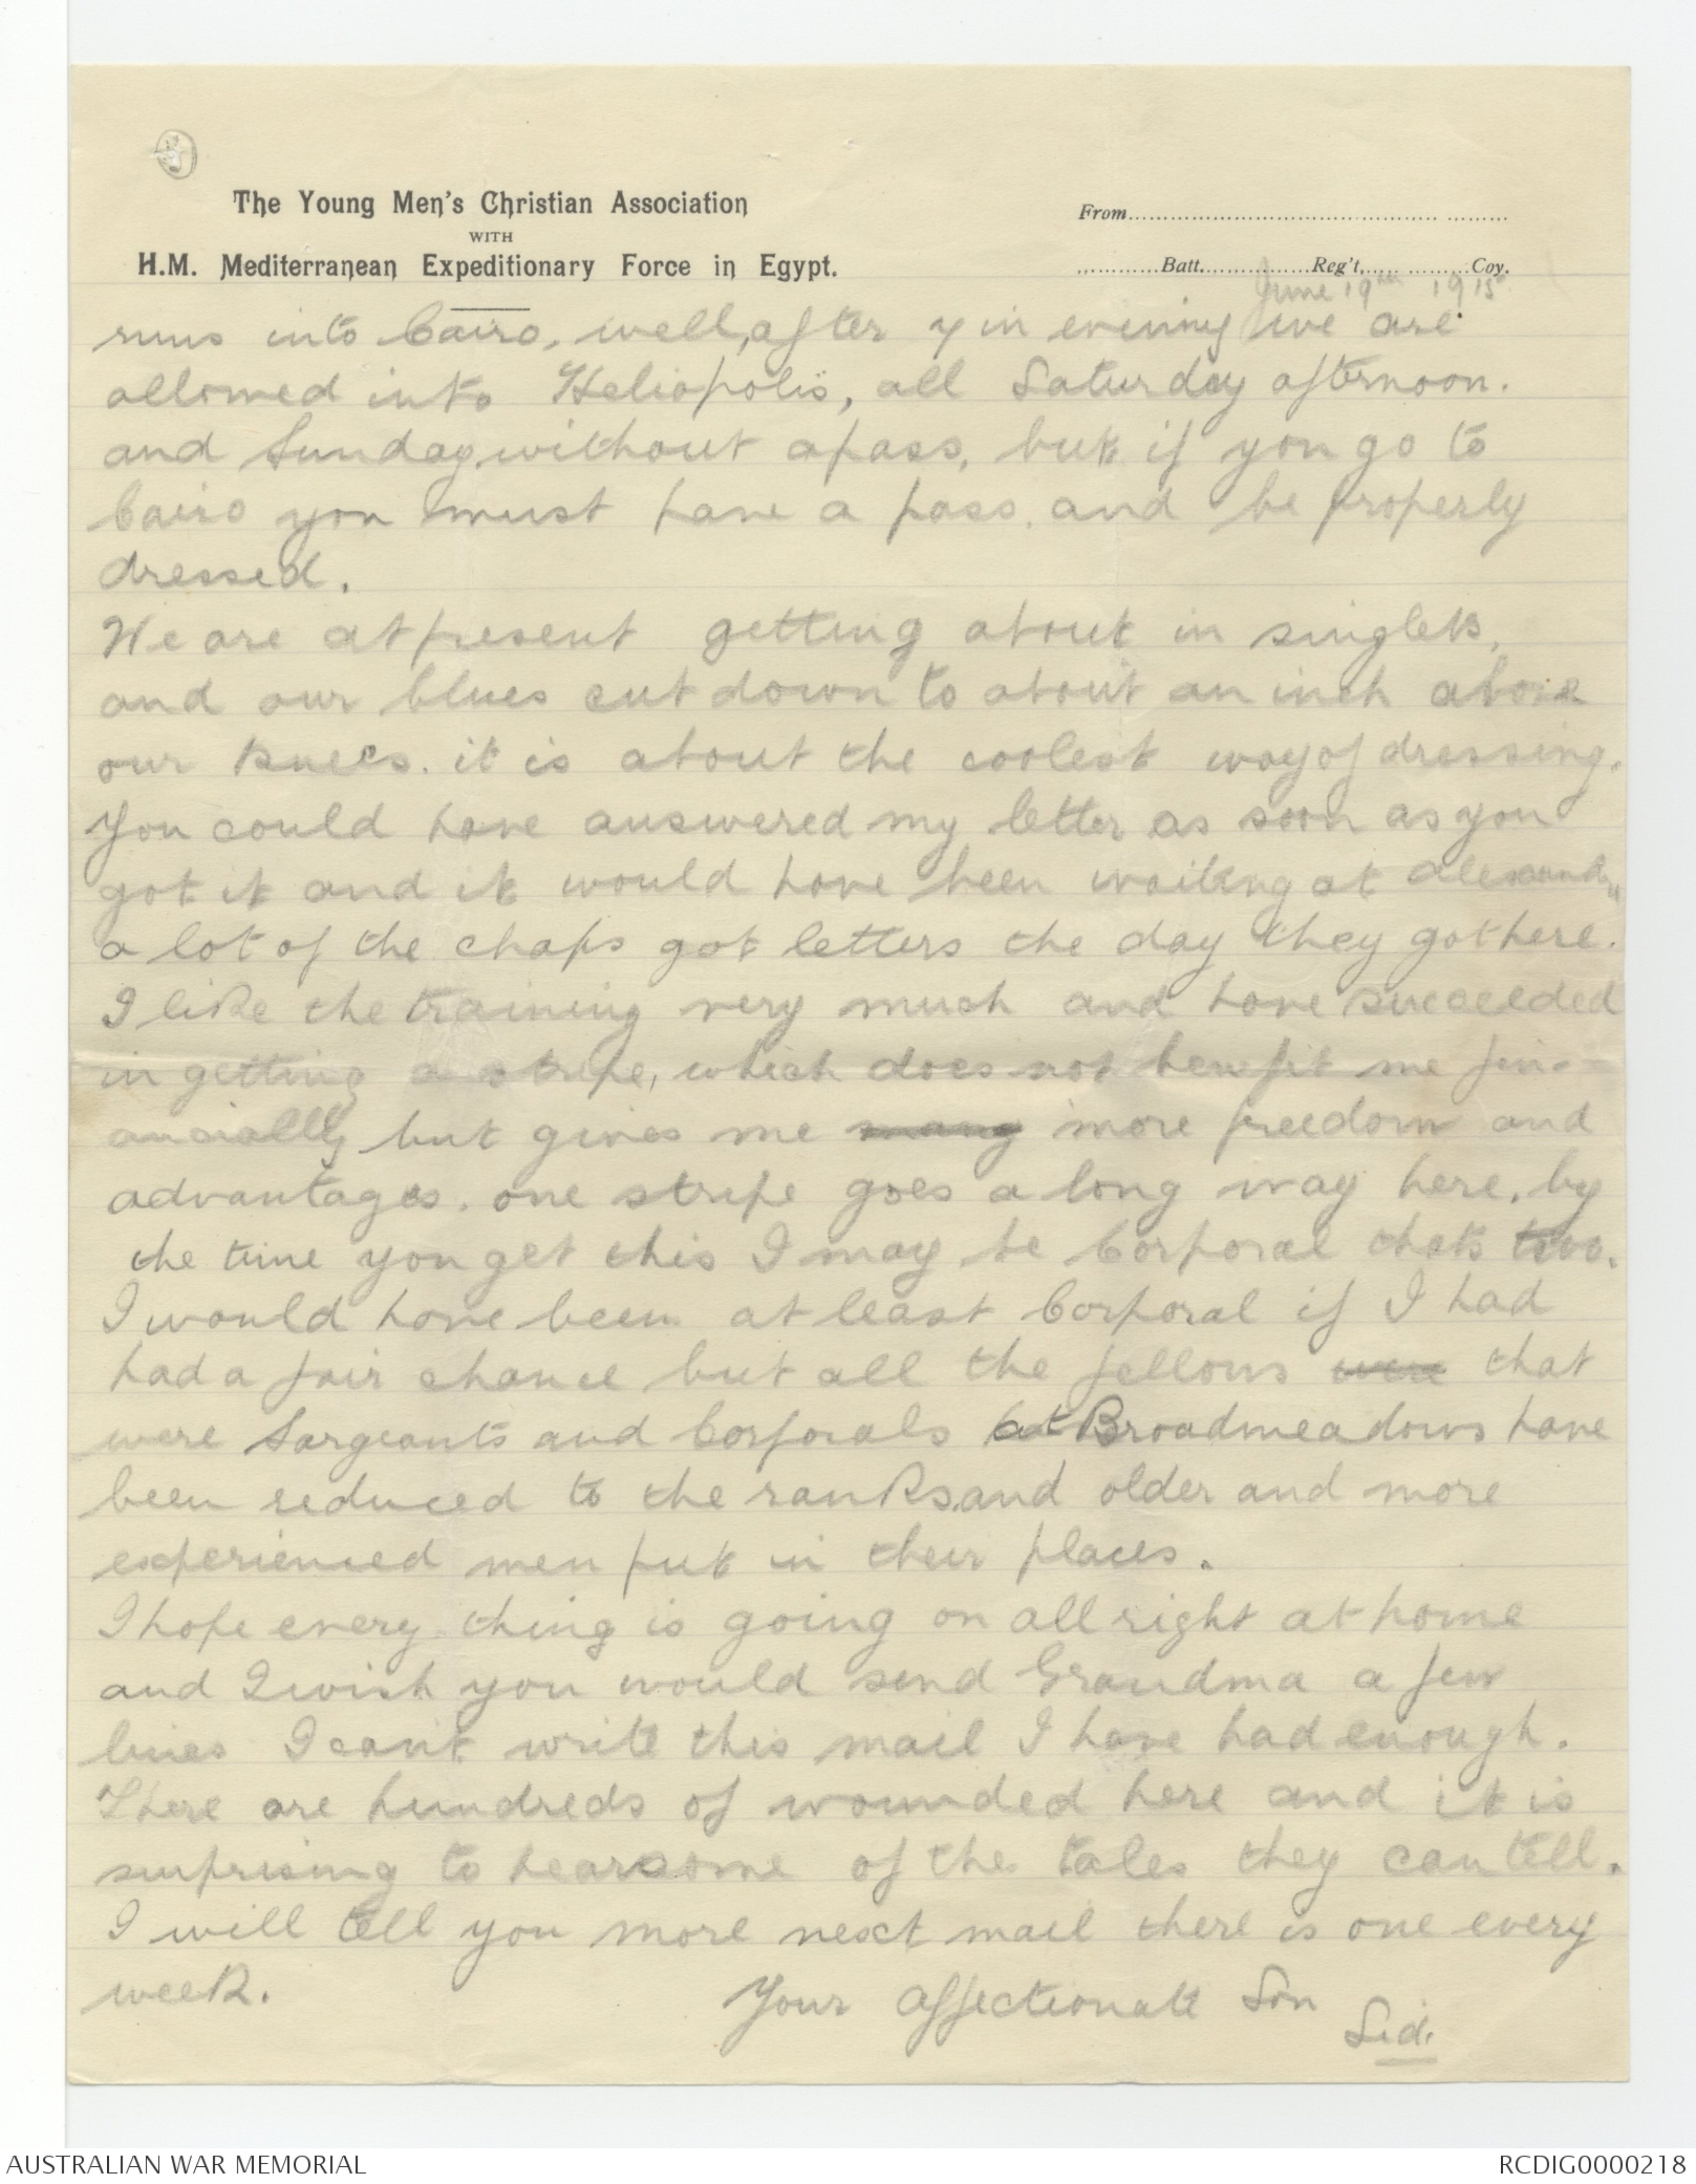 The Young Men's Christian Association
WITH
H.M. Mediterranean Expeditionary Force in Egypt.
From
Batt. Reg't. Coy.
June 19th 1915
runs into Cairo, well, after 7 in evening we are
allowed into Heliopolis, all Saturday afternoon.
and Sunday without a pass, but if you go to
Cairo you must have a pass. and be properly
dressed.
We are at present getting about in singlets,
and our blues cut down to about an inch above
our knees. it is about the coolest way of dressing.
You could have answered my letter as soon as you
got it and it would have been waiting at
a lot of the chaps got letters the day they got here.
I like the training very much and have succeeded
in getting a stripe, which does not benefit me fin-
ancially but gives me many more freedom and
advantages. one stripe goes a long way here, by
the time you get this I may be Corporal thats two.
I would have been at least Corporal if I had
had a fair chance but all the fellows were that
were Sargeants and Corporals at Broadmeadows have
been reduced to the ranks and older and more
experienced men put in their places.
I hope every thing is going on all right at home
and I wish you would send Grandma a few
lines I cant write this mail I have had enough.
There are hundreds of wounded here and it is
surprising to hear some of the tales they can tell.
I will tell you more next mail there is one every
week.
Your affectionate Son
Sid.
AUSTRALIAN WAR MEMORIAL
RCDIG0000218